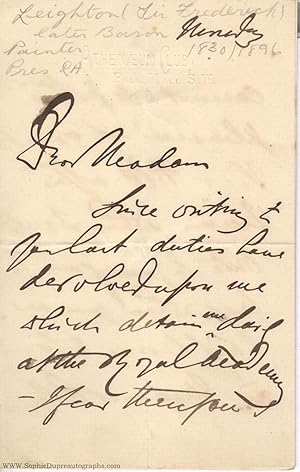 Leighton (Sir Frederick)
later Baron
Painter 1830/1896
Pres RA
ATHENÆUM CLUB
PALL MALL S.W
Dear Madam
Since writing to
you last duties have
devolved upon me
which detain me daily
at the Royal Academy
– I fear therefore
www.SophieDupreautographs.com